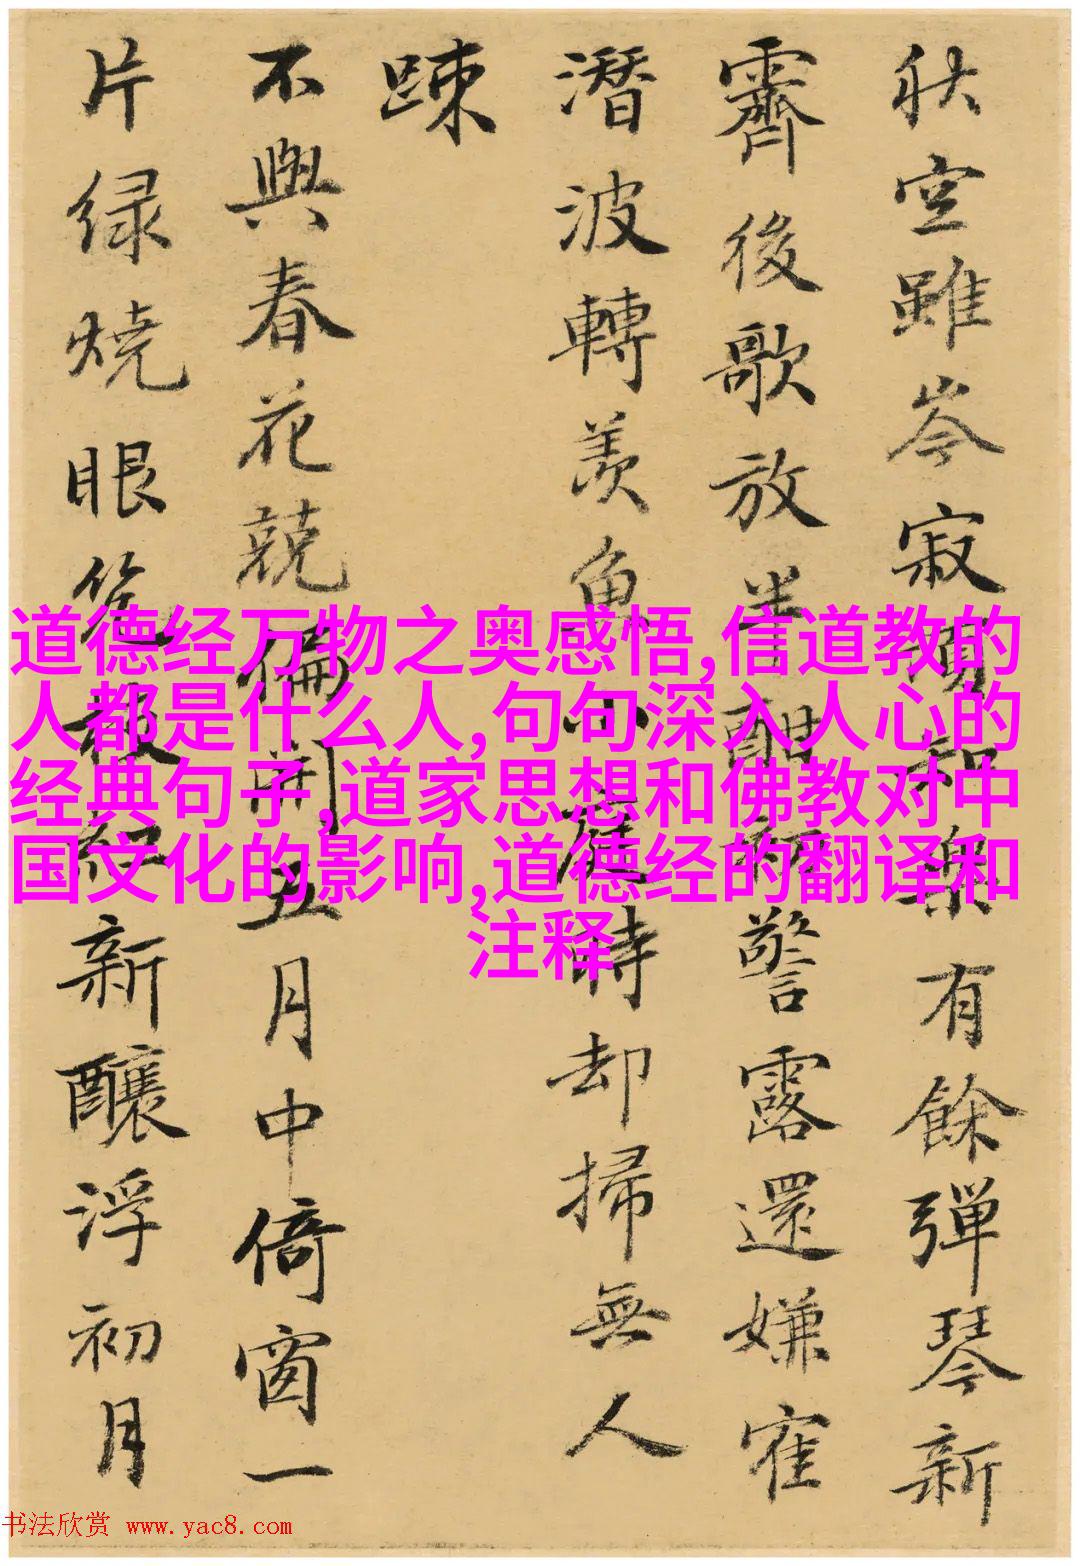 空雖岑寂頗和樂有餘彈琴新
霽後歌放半酣初警露還嫌寉
潛波轉羨魚小時却掃無人
踈
不與春花競偏開五月中倚窗一
片緑燒眼枝紅新釀浮初月
道德经万物之奥感悟,信道教的
人都是什么人,句句深入人心的
经典句子,道家思想和佛教对中
国文化的影响,道德经的翻译和
注释
书法欣赏 www.yac8.com